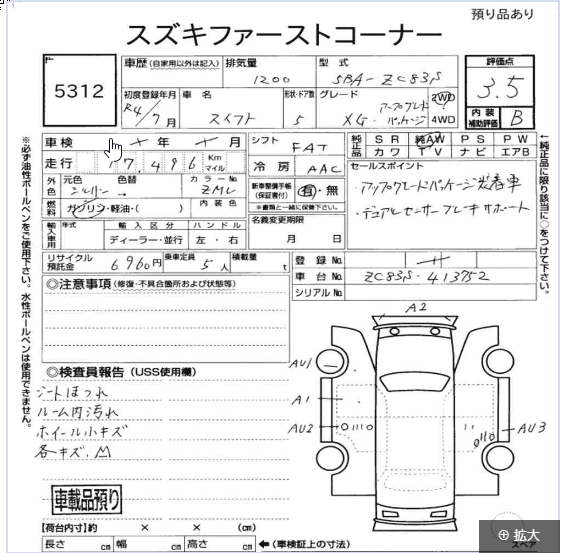 預り品あり
スズキファーストコーナー
5312
車歴 (自家用以外は記入)
排気量
1200
型式
5BA-ZC83S
評価点
3.5
初度登録年月
R4/7月
車名
スイフト
形状・ドア数
5
グレード
XG アップグレードパッケージ
2WD
4WD
内装補助評価
B
車検
年
月
走行
17,496
Km
マイル
外色
元色
シルバー
色替
カラーNo
ZML
燃料
ガソリン・軽油・( )
内装色
輸入車用
年式
輸入区分
ディーラー・並行
ハンドル
左・右
シフト
FAT
冷房
AAC
新車整備手帳(保証書付)
有・無
※書類と一緒に保管下さい。
名義変更期限
月 日
純正品
SR
純AW
PS
PW
カワ
TV
ナビ
エアB
セールスポイント
・アップグレードパッケージ装着車
・デュアルセンサーブレーキサポート
リサイクル預託金
6960円
乗車定員
5人
積載量
t
登録No.
車台No.
ZC83S-413752
シリアルNo.
◎注意事項 (修復・不具合箇所および状態等)
◎検査員報告 (USS使用欄)
シートほつれ
ルーム内汚れ
ホイール小キズ
各キズ、凹
A2
AU1
A1
AU2
AU3
車載品預り
【荷台内寸】約 × × (cm)
長さ cm 幅 cm 高さ cm
←(車検証上の寸法)
スペア
拡大
※必ず油性ボールペンをご使用下さい。水性ボールペンは使用できません。
←純正品に限り該当に○をつけて下さい。